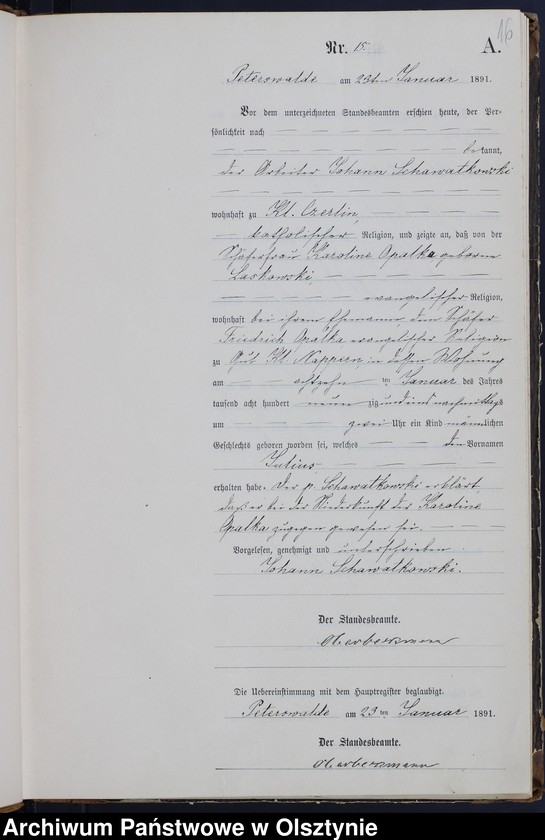 16
Nr. 15. A.
Peterswalde am 23ten Januar 1891.
Vor dem unterzeichneten Standesbeamten erschien heute, der Per-
sönlichkeit nach
bekannt,
der Arbeiter Johann Schawatkowski
wohnhaft zu Kl. Czerlin,
katholischer Religion, und zeigte an, daß von der
Schäferfrau Karoline Opalka geborene
Laskowski,
evangelischer Religion,
wohnhaft bei ihrem Ehemann, dem Schäfer
Friedrich Opalka evangelischer Religion
zu Gut Kl. Nappern, in dessen Wohnung
am achtzehn ten Januar des Jahres
tausend acht hundert neun zig und eins nachmittags
um zwei Uhr ein Kind männlichen
Geschlechts geboren worden sei, welches den Vornamen
Julius
erhalten habe. Der p. Schawatkowski erklärt,
daß er bei der Niederkunft der Karoline
Opalka zugegen gewesen sei.
Vorgelesen, genehmigt und unterschrieben
Johann Schawatkowski.
Der Standesbeamte.
Die Uebereinstimmung mit dem Hauptregister beglaubigt.
Peterswalde am 23ten Januar 1891.
Der Standesbeamte.
Archiwum Państwowe w Olsztynie